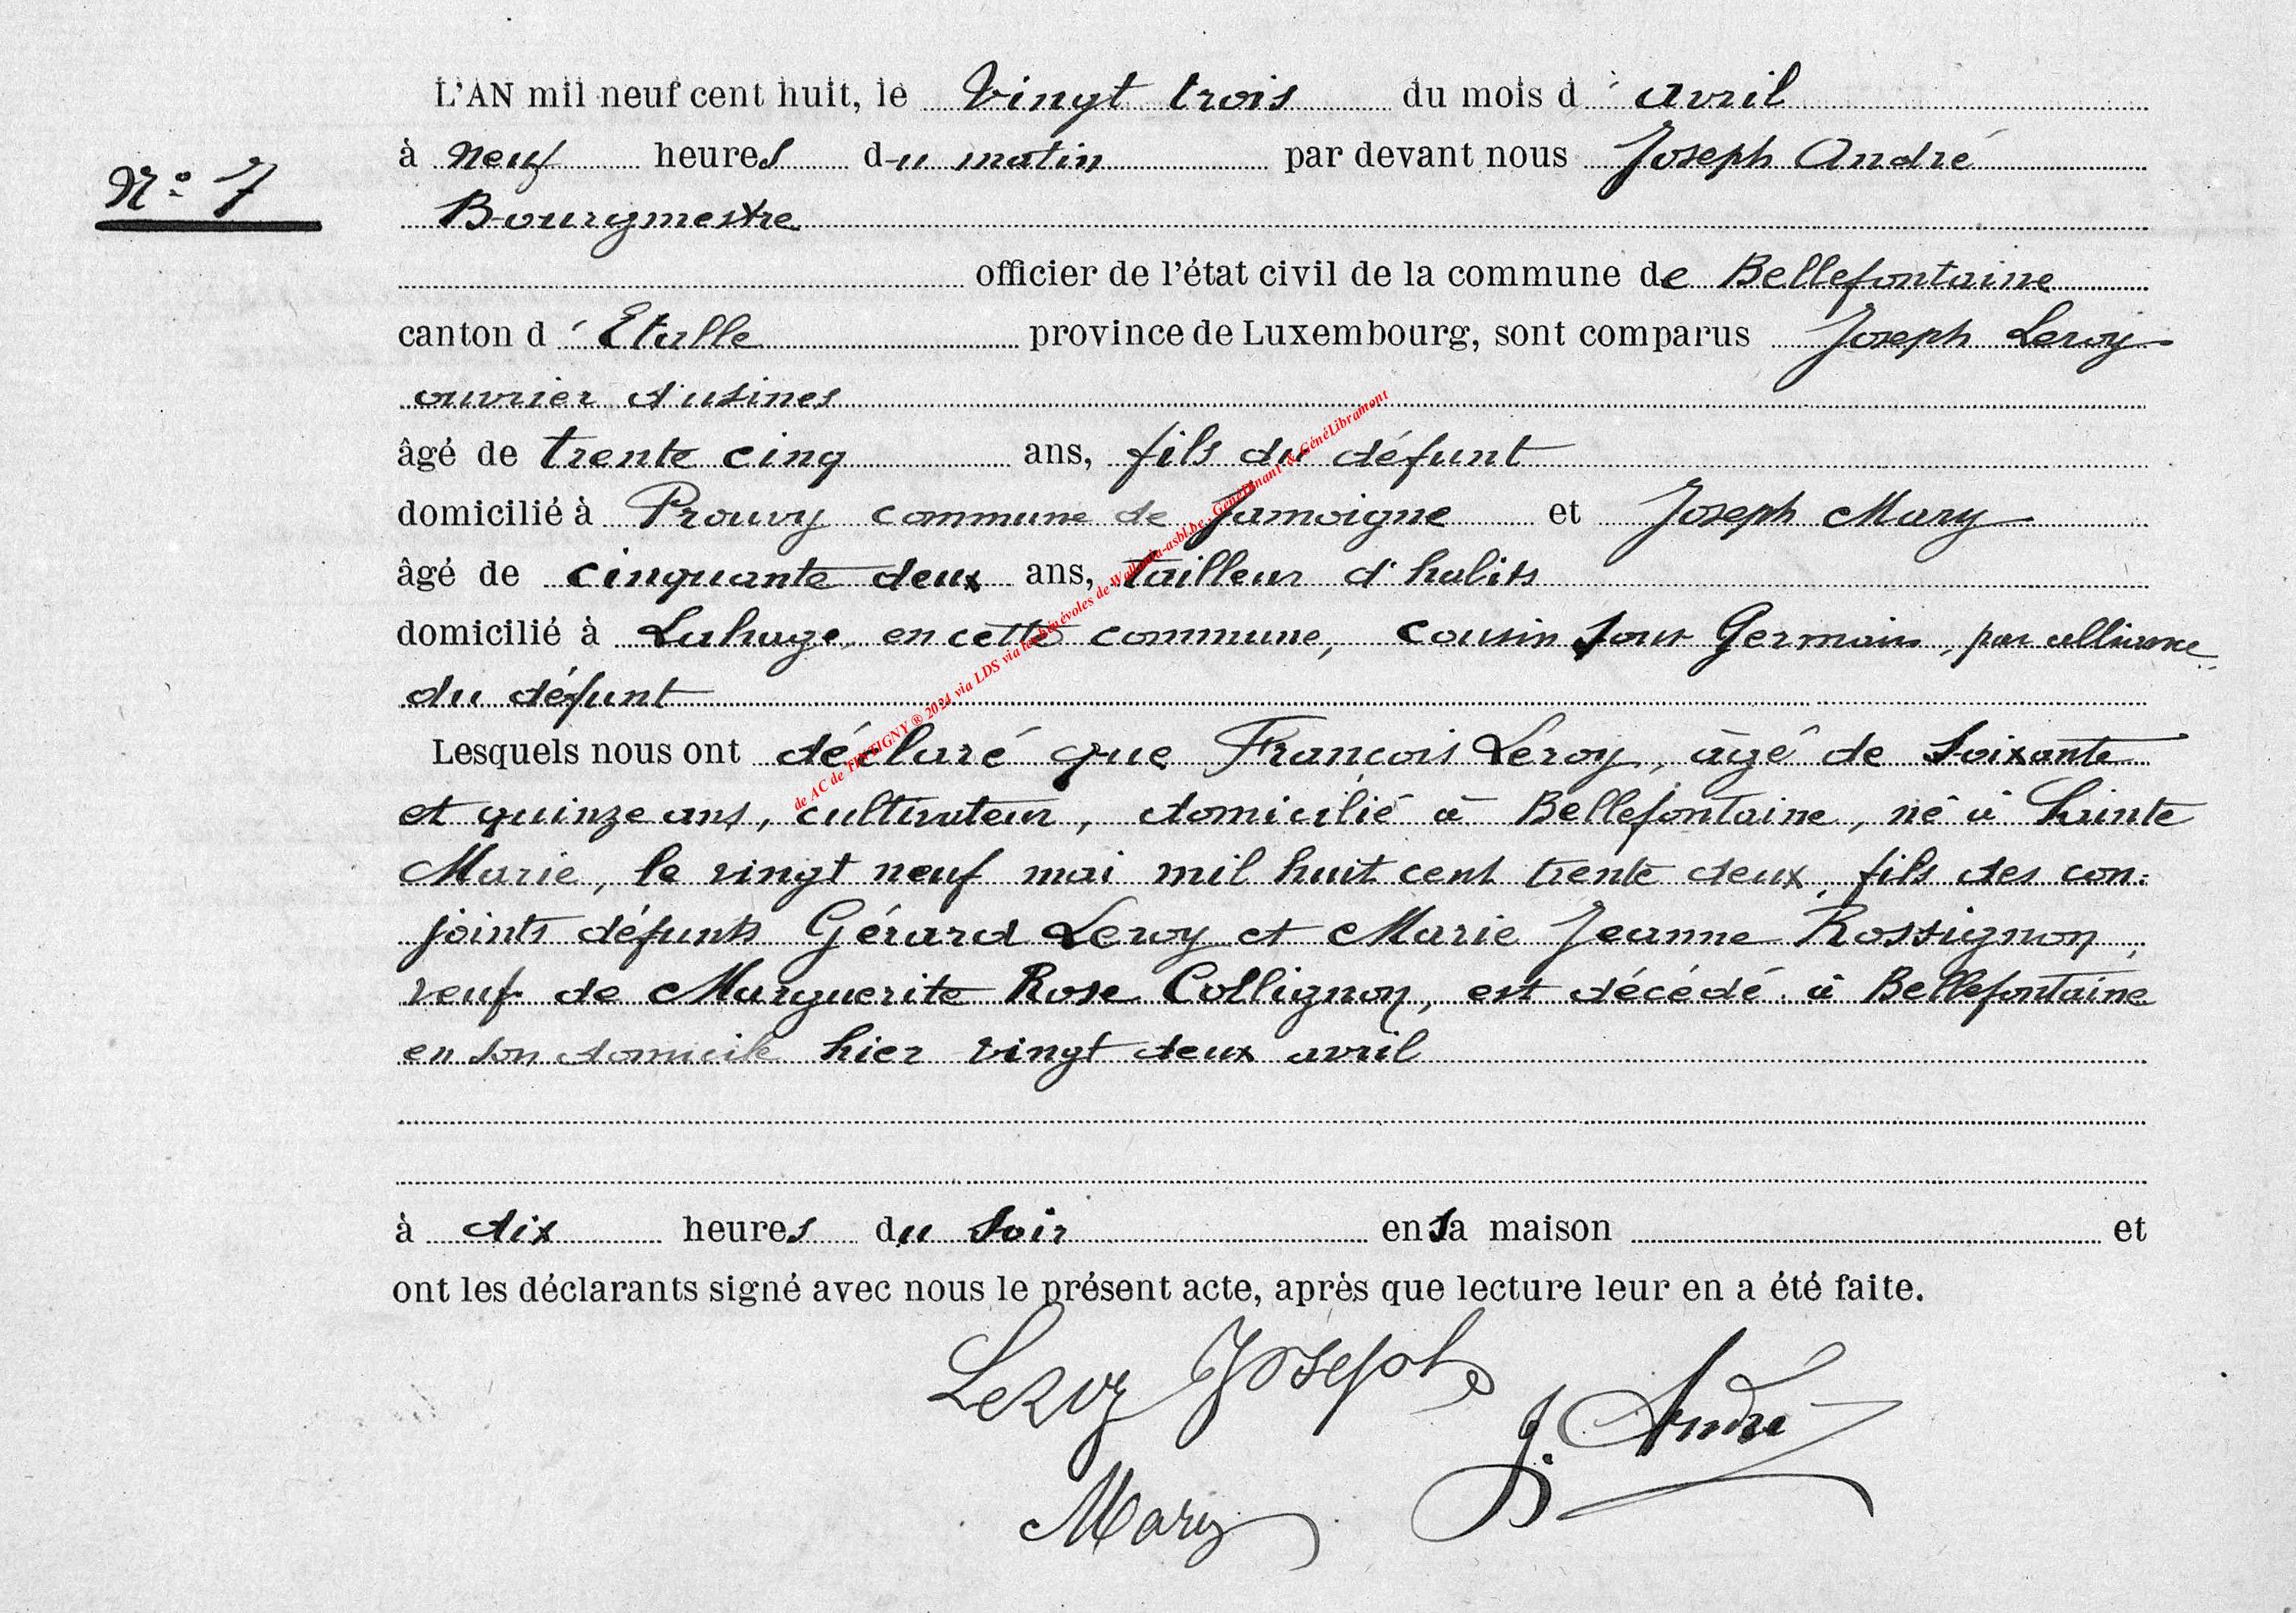 L'AN mil neuf cent huit, le vingt trois du mois d'avril
N° 7
à neuf heures du matin par devant nous Joseph André
Bourgmestre
officier de l'état civil de la commune de Bellefontaine
canton d'Etalle province de Luxembourg, sont comparus Joseph Leroy
ouvrier d'usines
âgé de trente cinq ans, fils du défunt
domicilié à Prouvy commune de Jamoigne et Joseph Mary
âgé de cinquante deux ans, tailleur d'habits
domicilié à Lahage en cette commune, cousin sous Germain, par alliance
du défunt
Lesquels nous ont déclaré que François Leroy, âgé de soixante
et quinze ans, cultivateur, domicilié à Bellefontaine, né à Sainte
Marie, le vingt neuf mai mil huit cent trente deux, fils des con-
joints défunts Gérard Leroy et Marie Jeanne Rossignon,
veuf de Marguerite Rose Collignon, est décédé à Bellefontaine
en son domicile hier vingt deux avril
à dix heures du soir en sa maison et
ont les déclarants signé avec nous le présent acte, après que lecture leur en a été faite.
Leroy Joseph
J. André
Mary
de AC de TINTIGNY ® 2024 via LDS via les bénévoles de Wallonia-asbl.be, GénéDinant & GénéLibramont